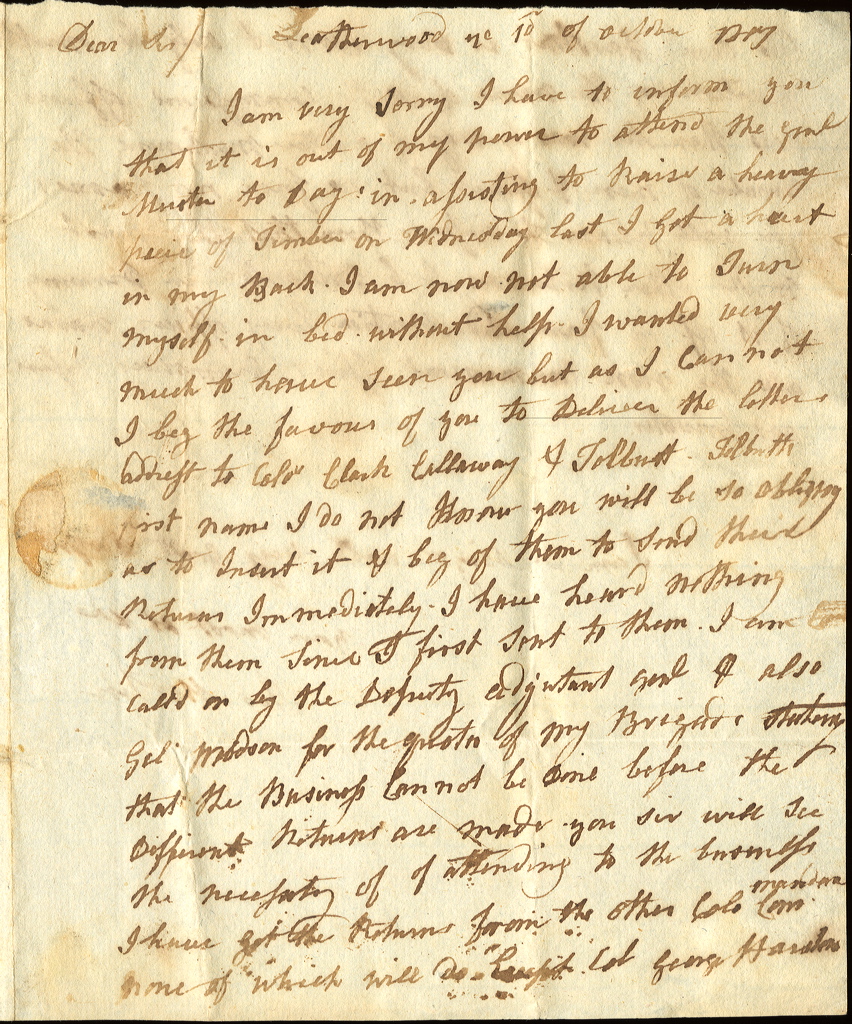 Dear Sir/ Leatherwood ye 10 of october 1807
I am very Sorry I have to inform you
that it is out of my power to attend the genl
Muster to Day: in assisting to Raise a heavy
peice of Timber on Wednesday last I got a hurt
in my Back. I am now not able to Turn
myself in bed without help. I wanted very
much to have seen you but as I Cannot
I beg the favour of you to Deliver the letters
addrest to Colo Clark Callaway & Tolbutt. Tolbutts
first name I do not Know you will be so obliging
as to Insert it & beg of them to send their
Returns Immediately. I have heard nothing
from them since I first sent to them. I am
called on by the Deputy adjutant genl & also
Gel for the quota of my Brigade stating
that the Business Cannot be Done before the
Different Returns are made you sir will See
the necessaty of of attending to the buseness
I have got the Returns from the other Colo Commandants
none of which will do Except Col George Hairston